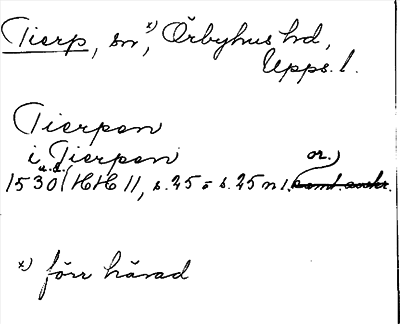 Tierp, sn *), Örbyhus hd,
Upps. l.
Tierpen
i Tierpen
1530 u.d. (HH 11, s. 25 = s. 25 n). or.)
*) förr härad